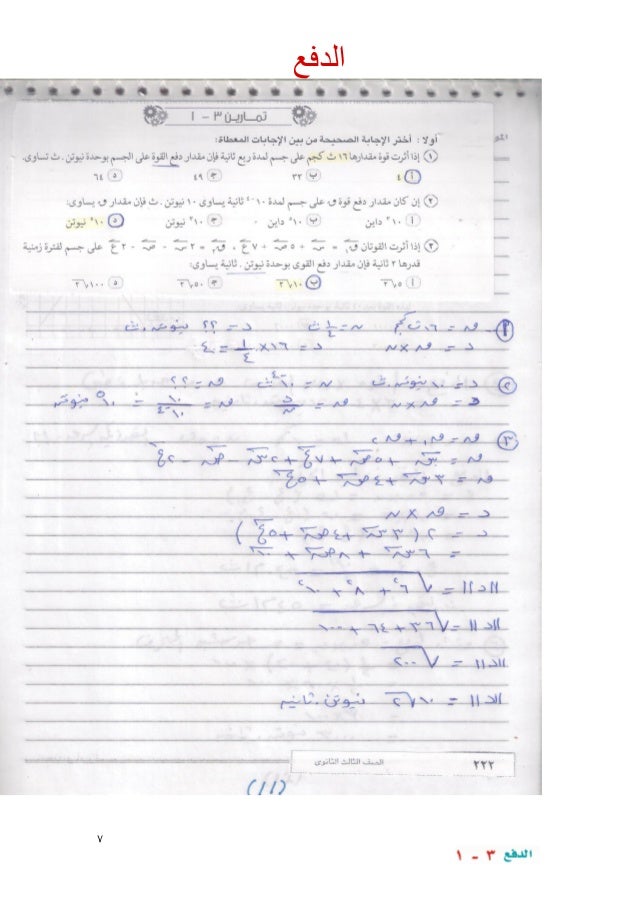 الدفع
تمارين ٣ - ١
أولا : أختر الإجابة الصحيحة من بين الإجابات المعطاة:
١ إذا أثرت قوة مقدارها ١٦ ث كجم على جسم لمدة ربع ثانية فإن مقدار دفع القوة على الجسم بوحدة نيوتن . ث تساوى.
أ ٤ ب ٣٢ ج ٤٩ د ٦٤
٢ إن كان مقدار دفع قوة ق على جسم لمدة ١٠-٤ ثانية يساوى ١٠ نيوتن . ث فإن مقدار ق يساوى:
أ ١٠٣ داين ب ١٠٥ داين ج ١٠٣ نيوتن د ١٠٥ نيوتن
٣ إذا أثرت القوتان ق١ = س + ٥ص + ٧ع ، ق٢ = ٢س - ص - ٢ع على جسم لفترة زمنية
قدرها ٢ ثانية فإن مقدار دفع القوى بوحدة نيوتن . ثانية يساوى:
أ ٥√٢ ب ١٠√٢ ج ٥٠√٢ د ١٠٠√٢
١ ق = ١٦ ث كجم ن = ١/٤ ث د = ؟؟ نيوتن.ث
د = ق × ن د = ١٦ × ١/٤ = ٤
٢ د = ١٠ نيوتن.ث ن = ١٠-٤ ث ق = ؟؟
د = ق × ن ق = د/ن ق = ١٠/١٠-٤ = ١٠٥ نيوتن
٣ ق = ق١ + ق٢
ق = س + ٥ص + ٧ع + ٢س - ص - ٢ع
ق = ٣س + ٤ص + ٥ع
د = ق × ن
د = ٢ ( ٣س + ٤ص + ٥ع )
= ٦س + ٨ص + ١٠ع
||د|| = √٦٢ + ٨٢ + ١٠٢
||د|| = √٣٦ + ٦٤ + ١٠٠
||د|| = √٢٠٠
||د|| = ١٠√٢ نيوتن.ثانيه
٢٢٢ الصف الثالث الثانوى
(١١)
٧
الدفع ٣ - ١